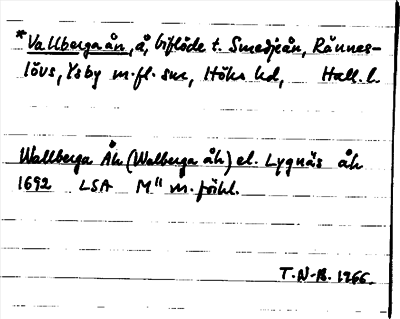 *Vallbergaån, å, biflöde t. Smedjeån, Rännes-
lövs, Ysby m.fl. snr, Höks hd, Hall. l.
Wallberga Åh (Walberga åh) el. Lygnäs åh
1692 LSA M" m. förhl.
T.N-B. 1966.